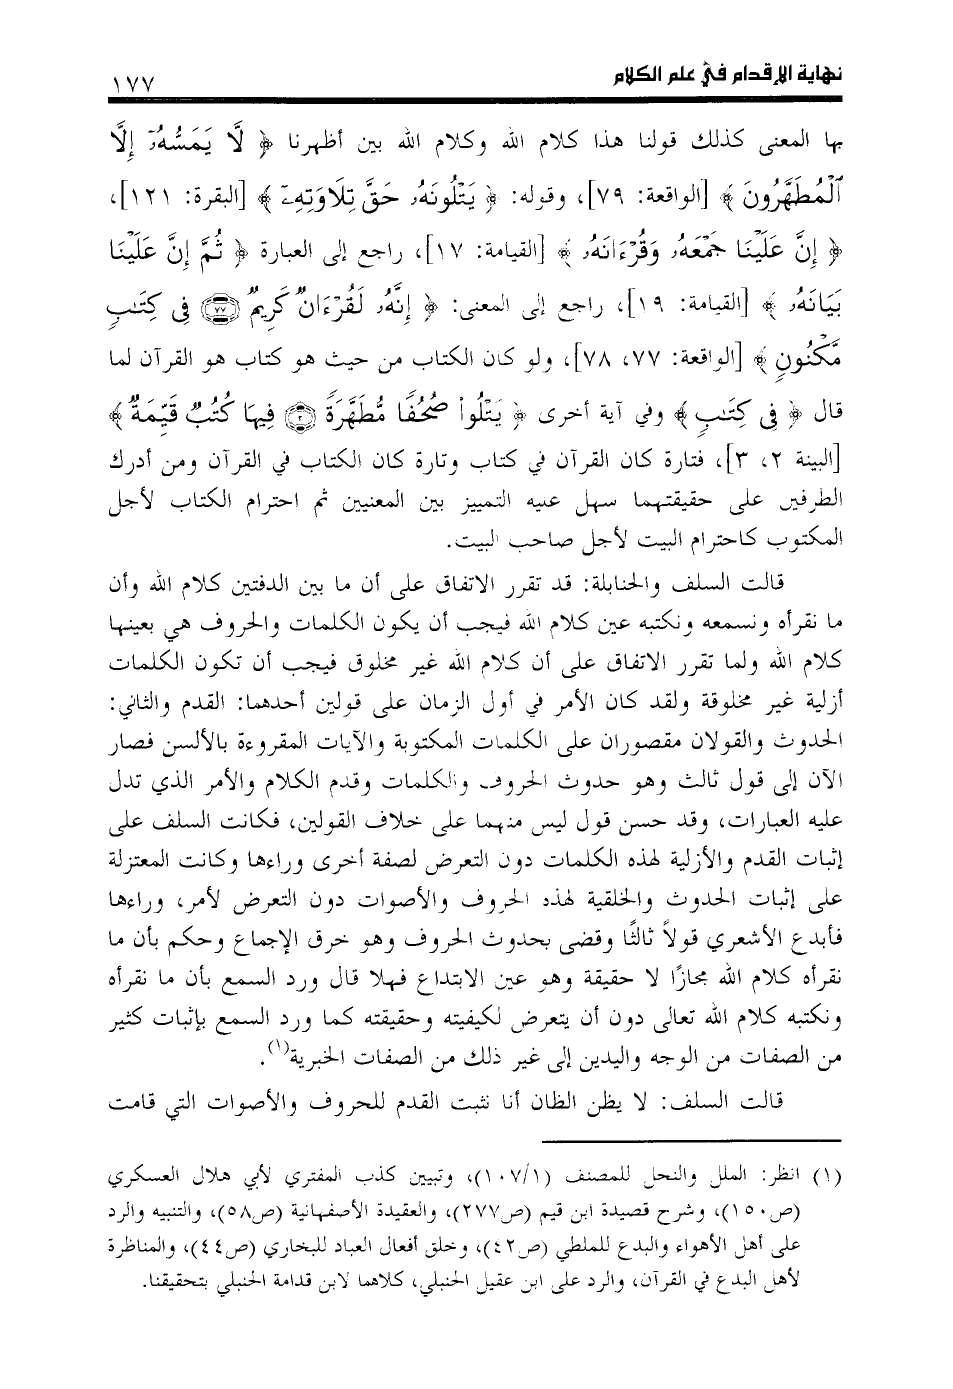 نهاية الإقدام في علم الكلام
١٧٧
بها المعنى كذلك قولنا هذا كلام الله وكلام الله بين أظهرنا ﴿ لَّا يَمَسُّهُۥٓ إِلَّا
ٱلْمُطَهَّرُونَ ﴾ [الواقعة: ٧٩]، وقوله: ﴿ يَتْلُونَهُۥ حَقَّ تِلَاوَتِهِۦٓ ﴾ [البقرة: ١٢١]،
﴿ إِنَّ عَلَيْنَا جَمْعَهُۥ وَقُرْءَانَهُۥ ﴾ [القيامة: ١٧]، راجع إلى العبارة ﴿ ثُمَّ إِنَّ عَلَيْنَا
بَيَانَهُۥ ﴾ [القيامة: ١٩]، راجع إلى المعنى: ﴿ إِنَّهُۥ لَقُرْءَانٌ كَرِيمٌ ۝٧٧ فِى كِتَـٰبٍ
مَّكْنُونٍ ﴾ [الواقعة: ٧٧، ٧٨]، ولو كان الكتاب من حيث هو كتاب هو القرآن لما
قال ﴿ فِى كِتَـٰبٍ ﴾ وفي آية أخرى ﴿ يَتْلُوا۟ صُحُفًا مُّطَهَّرَةً ۝٢ فِيهَا كُتُبٌ قَيِّمَةٌ ﴾
[البينة ٢، ٣]، فتارة كان القرآن في كتاب وتارة كان الكتاب في القرآن ومن أدرك
الطرفين على حقيقتهما سهل عليه التمييز بين المعنيين ثم احترام الكتاب لأجل
المكتوب كاحترام البيت لأجل صاحب البيت.
قالت السلف والحنابلة: قد تقرر الاتفاق على أن ما بين الدفتين كلام الله وأن
ما نقرأه ونسمعه ونكتبه عين كلام الله فيجب أن يكون الكلمات والحروف هي بعينها
كلام الله ولما تقرر الاتفاق على أن كلام الله غير مخلوق فيجب أن تكون الكلمات
أزلية غير مخلوقة ولقد كان الأمر في أول الزمان على قولين أحدهما: القدم والثاني:
الحدوث والقولان مقصوران على الكلمات المكتوبة والآيات المقروءة بالألسن فصار
الآن إلى قول ثالث وهو حدوث الحروف والكلمات وقدم الكلام والأمر الذي تدل
عليه العبارات، وقد حسن قول ليس منهما على خلاف القولين، فكانت السلف على
إثبات القدم والأزلية لهذه الكلمات دون التعرض لصفة أخرى وراءها وكانت المعتزلة
على إثبات الحدوث والخلقية لهذه الحروف والأصوات دون التعرض لأمر، وراءها
فأبدع الأشعري قولاً ثالثًا وقضى بحدوث الحروف وهو خرق الإجماع وحكم بأن ما
نقرأه كلام الله مجازًا لا حقيقة وهو عين الابتداع فهلا قال ورد السمع بأن ما نقرأه
ونكتبه كلام الله تعالى دون أن يتعرض لكيفيته وحقيقته كما ورد السمع بإثبات كثير
من الصفات من الوجه واليدين إلى غير ذلك من الصفات الخبرية(١).
قالت السلف: لا يظن الظان أنا نثبت القدم للحروف والأصوات التي قامت
(١) انظر: الملل والنحل للمصنف (١٠٧/١)، وتبيين كذب المفتري لأبي هلال العسكري
(ص١٥٠)، وشرح قصيدة ابن قيم (ص٢٧٧)، والعقيدة الأصفهانية (ص٥٨)، والتنبيه والرد
على أهل الأهواء والبدع للملطي (ص٤٢)، وخلق أفعال العباد للبخاري (ص٤٤)، والمناظرة
لأهل البدع في القرآن، والرد على ابن عقيل الحنبلي، كلاهما لابن قدامة الحنبلي بتحقيقنا.